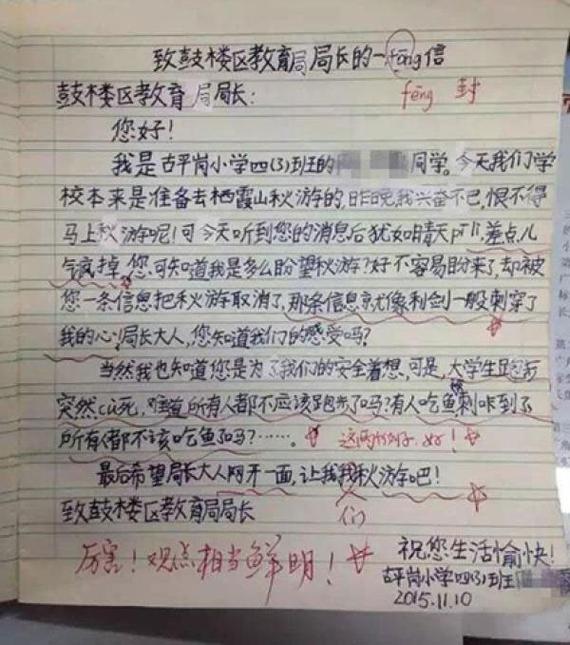 致鼓楼区教育局局长的一fēng信
鼓楼区教育局局长：
fēng 封
您好！
我是古平岗小学四(3)班的 同学。今天我们学
校本来是准备去栖霞山秋游的，昨晚我兴奋不已，恨不得
马上秋游呢！可今天听到您的消息后犹如晴天pī lì，差点儿
气疯掉，您可知道我是多么盼望秋游？好不容易盼来了，却被
您一条信息把秋游取消了，那条信息就像利剑一般刺穿了
我的心！局长大人，您知道我们的感受吗？
当然我也知道您是为了我们的安全着想，可是，大学生跑步
突然cù死，难道所有人都不应该跑步了吗？有人吃鱼刺咔到了
所有人都不该吃鱼了吗？……。 这两个例子好！
最后希望局长大人网开一面，让我我秋游吧！
们
致鼓楼区教育局局长
厉害！观点相当鲜明！
祝您生活愉快！
古平岗小学四(3)班
2015.11.10